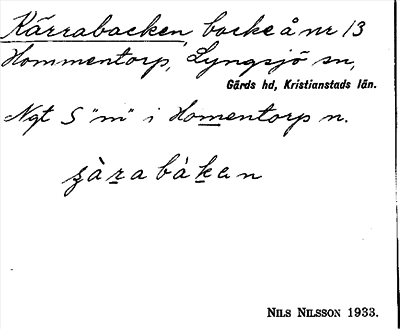 Kärrabacken backe å nr 13
Hommentorp, Lyngsjö sn,
Gärds hd, Kristianstads län.
Ngt S "m" i Homentorp n.
NILS NILSSON 1933.